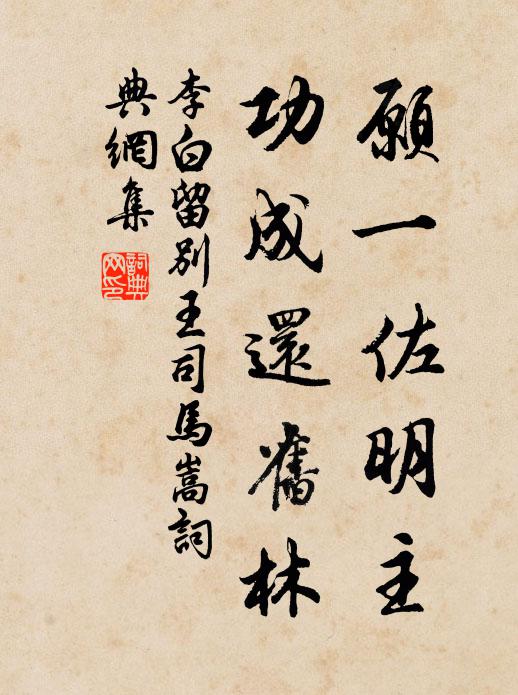 願一佐明主
功成還舊林
李白留別王司馬嵩詞
典網集
詞典网印